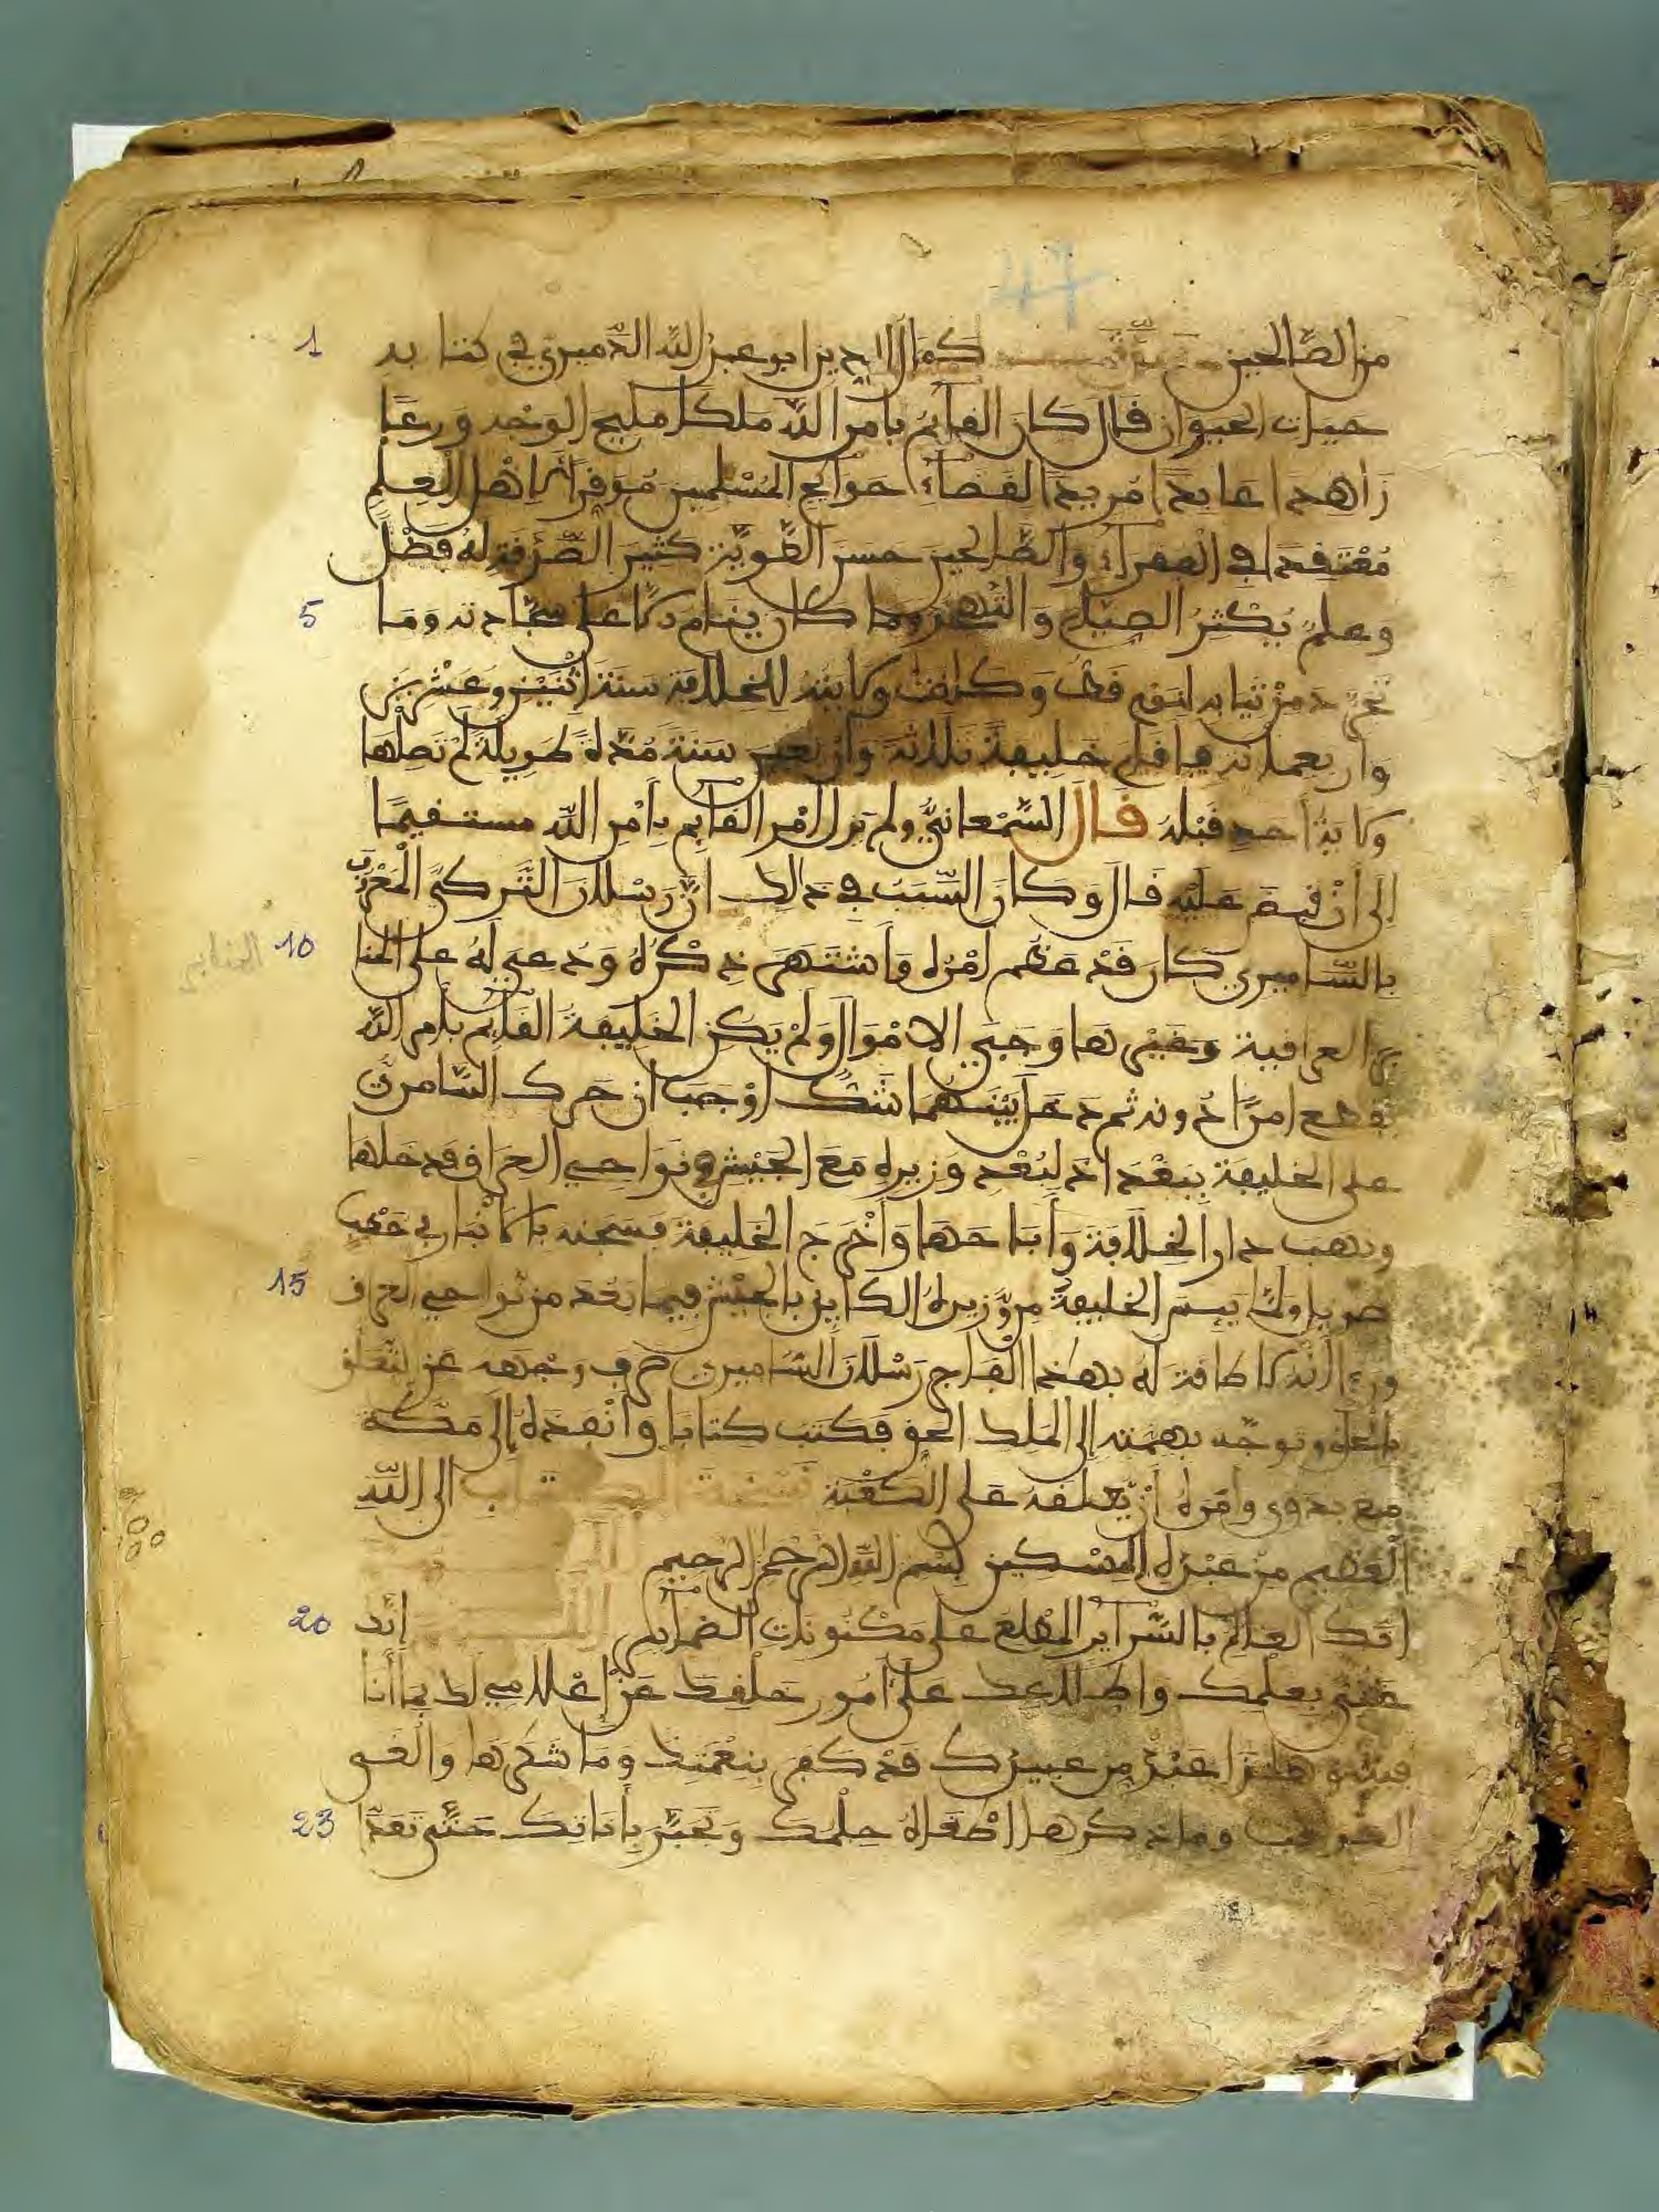 47
1 من الصّالحين كمال الدين ابو عبد اللّه الدّميري في كتابه
حيات الحيوان قال كان القايم بامر اللّه ملكا مليح الوجه ورعًا
زاهدا عابدا مريدا لقضاء حوايج المُسْلمين مُوَفِّرا لاهل العِلمِ
مُعْتقدا في الفقراء والصّالحين حسن الطّويّة كثير الصّدقة له فضْل
5 وعلم يُكْثر الصيام والتّهجد وما كان ينام الا على سجّادته وما
تجرد من ثيابه لنوم قط وكانت ولايته للخلافة سنة اثنين وعشرين
واربعماية فاقام خليفة ثلاثة واربعين سنة مُدّة طويلة لم تصلها
ولاية احد قبله قال السّمْعاني ولم يزل امْر القايم بأمْر اللّه مستقيمًا
إلى أنْ قبض عليه قال وكان السّبب في ذالك انّ رسلان التّركي المعْروف
10 بالسّاميري كان قدْ عظم امْره وانتشهى ذكْره ودعي له على المنا
بر العراقية وغيرها وجبي الامْوال ولمْ يكن الخليفة القايم بأمر اللّه
يقطع امرًا دونه ثم دخل بينهما شكّ اوْجب ان حرك السّامري
على الخليفة ببغداد لبُعْد وزيره مع الجيْش في نواحي العراق فدخلها
ونهب دار الخلافة وأباحها وأخْرج الخليفة فسجنه بالانْبار في
ولمّا ييس الخليفة من وّزيره الكاين بالجيْش فيما بعُد من نواحي العراق 15
ورءا أنّه لا طاقة له بهذا الفاجر رسْلان السّاميري صرف وجهه عن التّعلّق
بالخلق وتوجّه بهمّته إلى الملك الحق فكتب كتابا وانْفذه إلى مكّة
مع بدوي وامره أن يّعلقه على الكعْبة نسخة الكتاب الى اللّه
العظيم من عبْده المسْكين بسْم اللّه الرّحْمٰن الرحيم
20 انّك العالم بالسّراير المطّلع على مكْنونات الضّماير اللهم إنّك
غنيّ بعلْمك واطّلاعك على أمور خلْقك عنْ إعْلامي لك بما أنا
فيه هذا عبْدٌ من عبيدك قدْ كفر بنعْمتك وما شكرها والْغى
23 العواقب وما ذكرها اطْغاهُ حلْمك وتجبّر بأناتك حتّى تعدّا
الخنابي